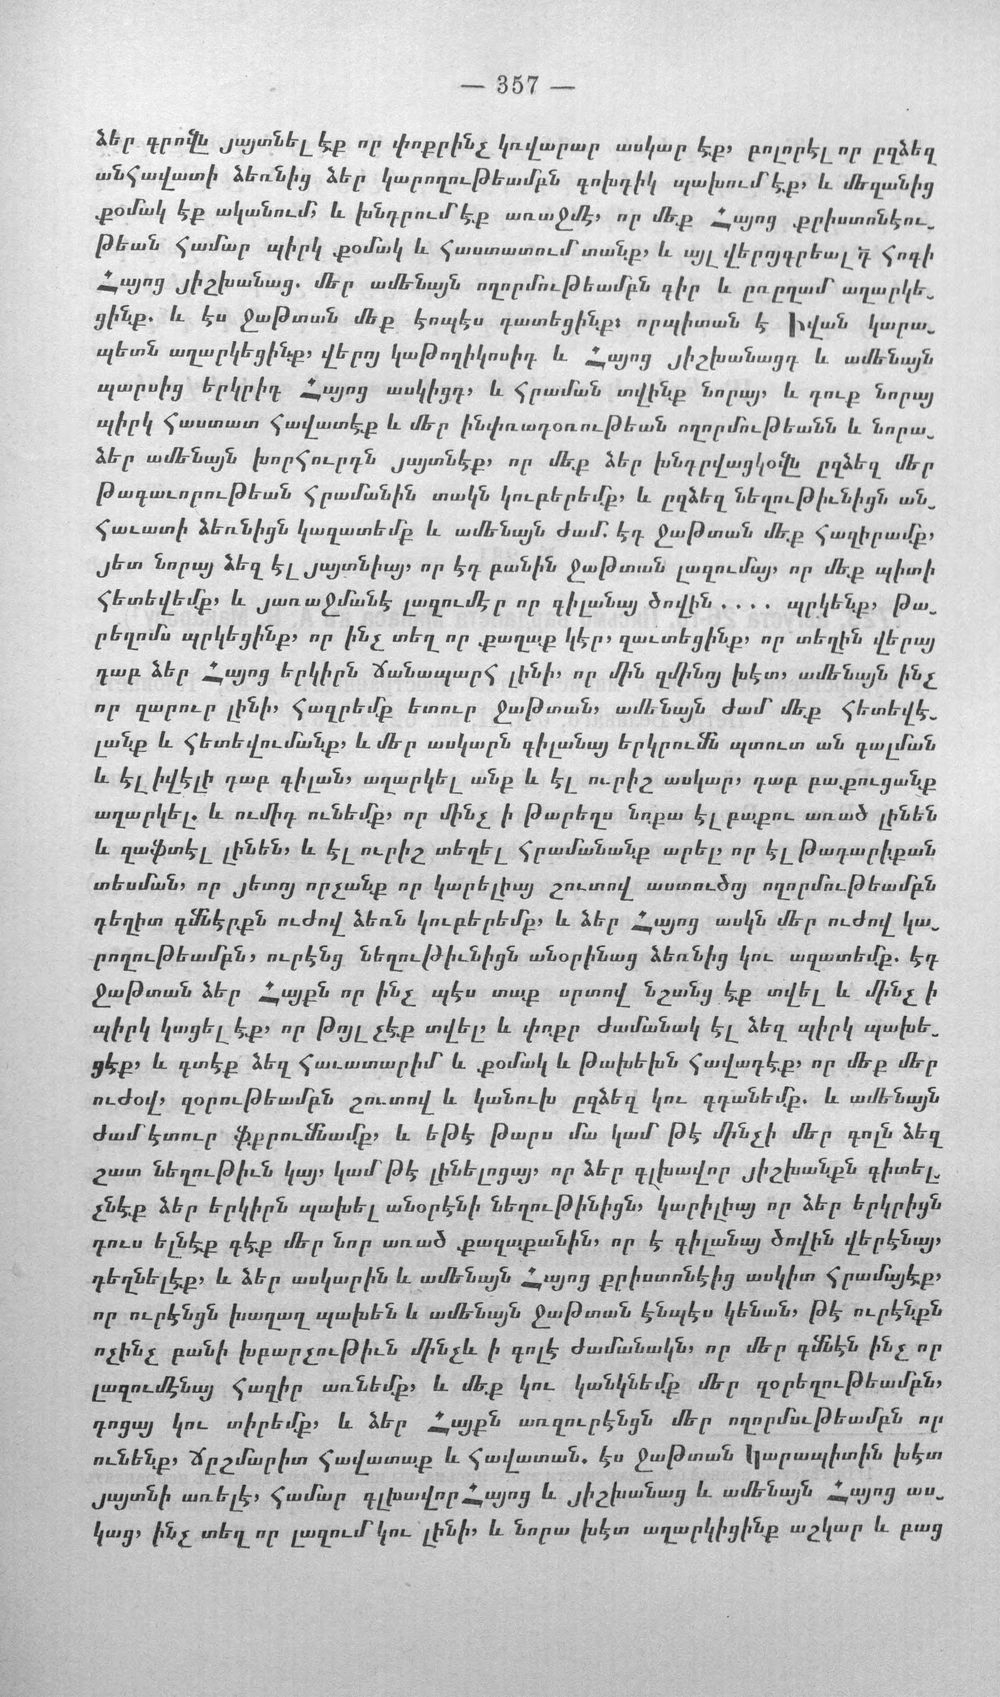 — 357 —
ձեր գրովն յայտնել էք որ փոքրինչ կռվարար ասկար էք, բոլորէլ որ ըզձեզ
անհավատի ձեռնից ձեր կարողութեամբն գոխդիկ պախում էք, և մեզանից
քօմակ էք ականում, և խնդրում էք առաջմէ, որ մեք Հայոց քրիստոնէու-
թեան համար պիրկ քօմակ և հաստատում տանք, և այլ վերոյգրեալ դ հոգի
Հայոց յիշխանաց. մեր ամենայն ողորմութեամբն գիր և ըռըղամ աղարկե-
ցինք. և էս ջաթտան մեք էոպէս դատեցինք։ որպիտան է Իվան կարա-
պետն աղարկեցինք, վերոյ կաթողիկոսիդ և Հայոց յիշխանացդ և ամենայն
պարսից երկրիդ Հայոց ասկիցդ, և հրաման տվինք նորայ, և դուք նորայ
պիրկ հաստատ հավատէք և մեր ինփռադօռութեան ողորմութեանն և նորա-
ձեր ամենայն խորհուրդն յայտնէք, որ մեք ձեր խնդրվացկօվն ըզձեզ մեր
թագաւորութեան հրամանին տակն կուբերեմք, և ըզձեզ նեղութիւնիցն ան-
հաւատի ձեռնիցն կազատեմք և ամենայն ժամ. էդ ջաթտան մեք հազիրամք,
յետ նորայ ձեզ էլ յայտնիայ, որ էդ բանին ջաթտան լազումայ, որ մեք պիտի
հետեվեմք, և յառաջմանէ լազումէր որ գիլանայ ծովին .... պրկենք, թա-
րեղոմս պրկեցինք, որ ինչ տեղ որ քաղաք կէր, զաւտեցինք, որ տեղին վերայ
դաբ ձեր Հայոց երկիրն ճանապարհ լինի, որ մին զմինոյ խէտ, ամենայն ինչ
որ զարուր լինի, հազրեմք ետուր ջաթտան, ամենայն ժամ մեք հետեվէ-
լանք և հետեվումանք, և մեր ասկարն գիլանայ երկրումն պտուտ ան գալման
և էլ խվէլի դաբ գիլան, աղարկել անք և էլ ուրիշ ասկար, դաբ բաքուցանք
աղարկել. և ումիդ ունեմք, որ մինչ ի թարեղս նոքա էլ բաքու առած լինեն
և զաֆտէլ լինեն, և էլ ուրիշ տեղել հրամանանք արել, որ էլ թադարիքան
տեսման, որ յետոյ որչանք որ կարելիայ շուտով աստուծոյ ողորմութեամբն
դեղիտ գմնէրքն ուժով ձեռն կուբերեմք, և ձեր Հայոց ասկն մեր ուժով կա-
րողութեամբն, ուրէնց նեղութիւնիցն անօրինաց ձեռնից կու ազատեմք. էդ
ջաթտան ձեր Հայքն որ ինչ պէս տաք սրտով նշանց էք տվել և մինչ ի
պիրկ կացել էք, որ թոյլ չէք տվել, և փոքր ժամանակ էլ ձեզ պիրկ պախե-
ցէք, և գտէք ձեզ հաւատարիմ և քօմակ և թախեխն հավադէք, որ մեք մեր
ուժօվ, զօրութեամբն շուտով և կանուխ ըզձեզ կու գդանեմք. և ամենայն
ժամ էտուր ֆքրումնամք, և եթէ թարս մա կամ թէ մինչի մեր գոլն ձեզ
շատ նեղութիւն կայ, կամ թէ լինելոցայ, որ ձեր գլխավոր յիշխանքն գիտել-
չնէք ձեր երկիրն պախել անօրէնի նեղութինիցն, կարիլիայ որ ձեր երկրիցն
դուս ելնէք դէք մեր նոր առած քաղաքանին, որ է գիլանայ ծովին վերէնայ,
դեղնելէք, և ձեր ասկարին և ամենայն Հայոց քրիստոնէից ասկիտ հրամայէք,
որ ուրէնցն խաղաղ պախեն և ամենայն ջաթտան էնպէս կենան, թէ ուրէնքն
ոչինչ բանի խբարչութիւն մինչև ի գոլէ ժամանակն, որ մեր գմնէն ինչ որ
լազումէնայ հազիր առնեմք, և մեք կու կանկնեմք մեր զօրեղութեամբն,
դոցայ կու տիրեմք, և ձեր Հայքն առզուրէնցն մեր ողորմութեամբն որ
ունենք, ճըշմարիտ հավատաք և հավատան. էս ջաթտան Կարապիտին խէտ
յայտնի առելէ, համար գլխավոր Հայոց և յիշխանաց և ամենայն Հայոց աս-
կաց, ինչ տեղ որ լազում կու լինի, և նորա խէտ աղարկիցինք աշկար և բաց